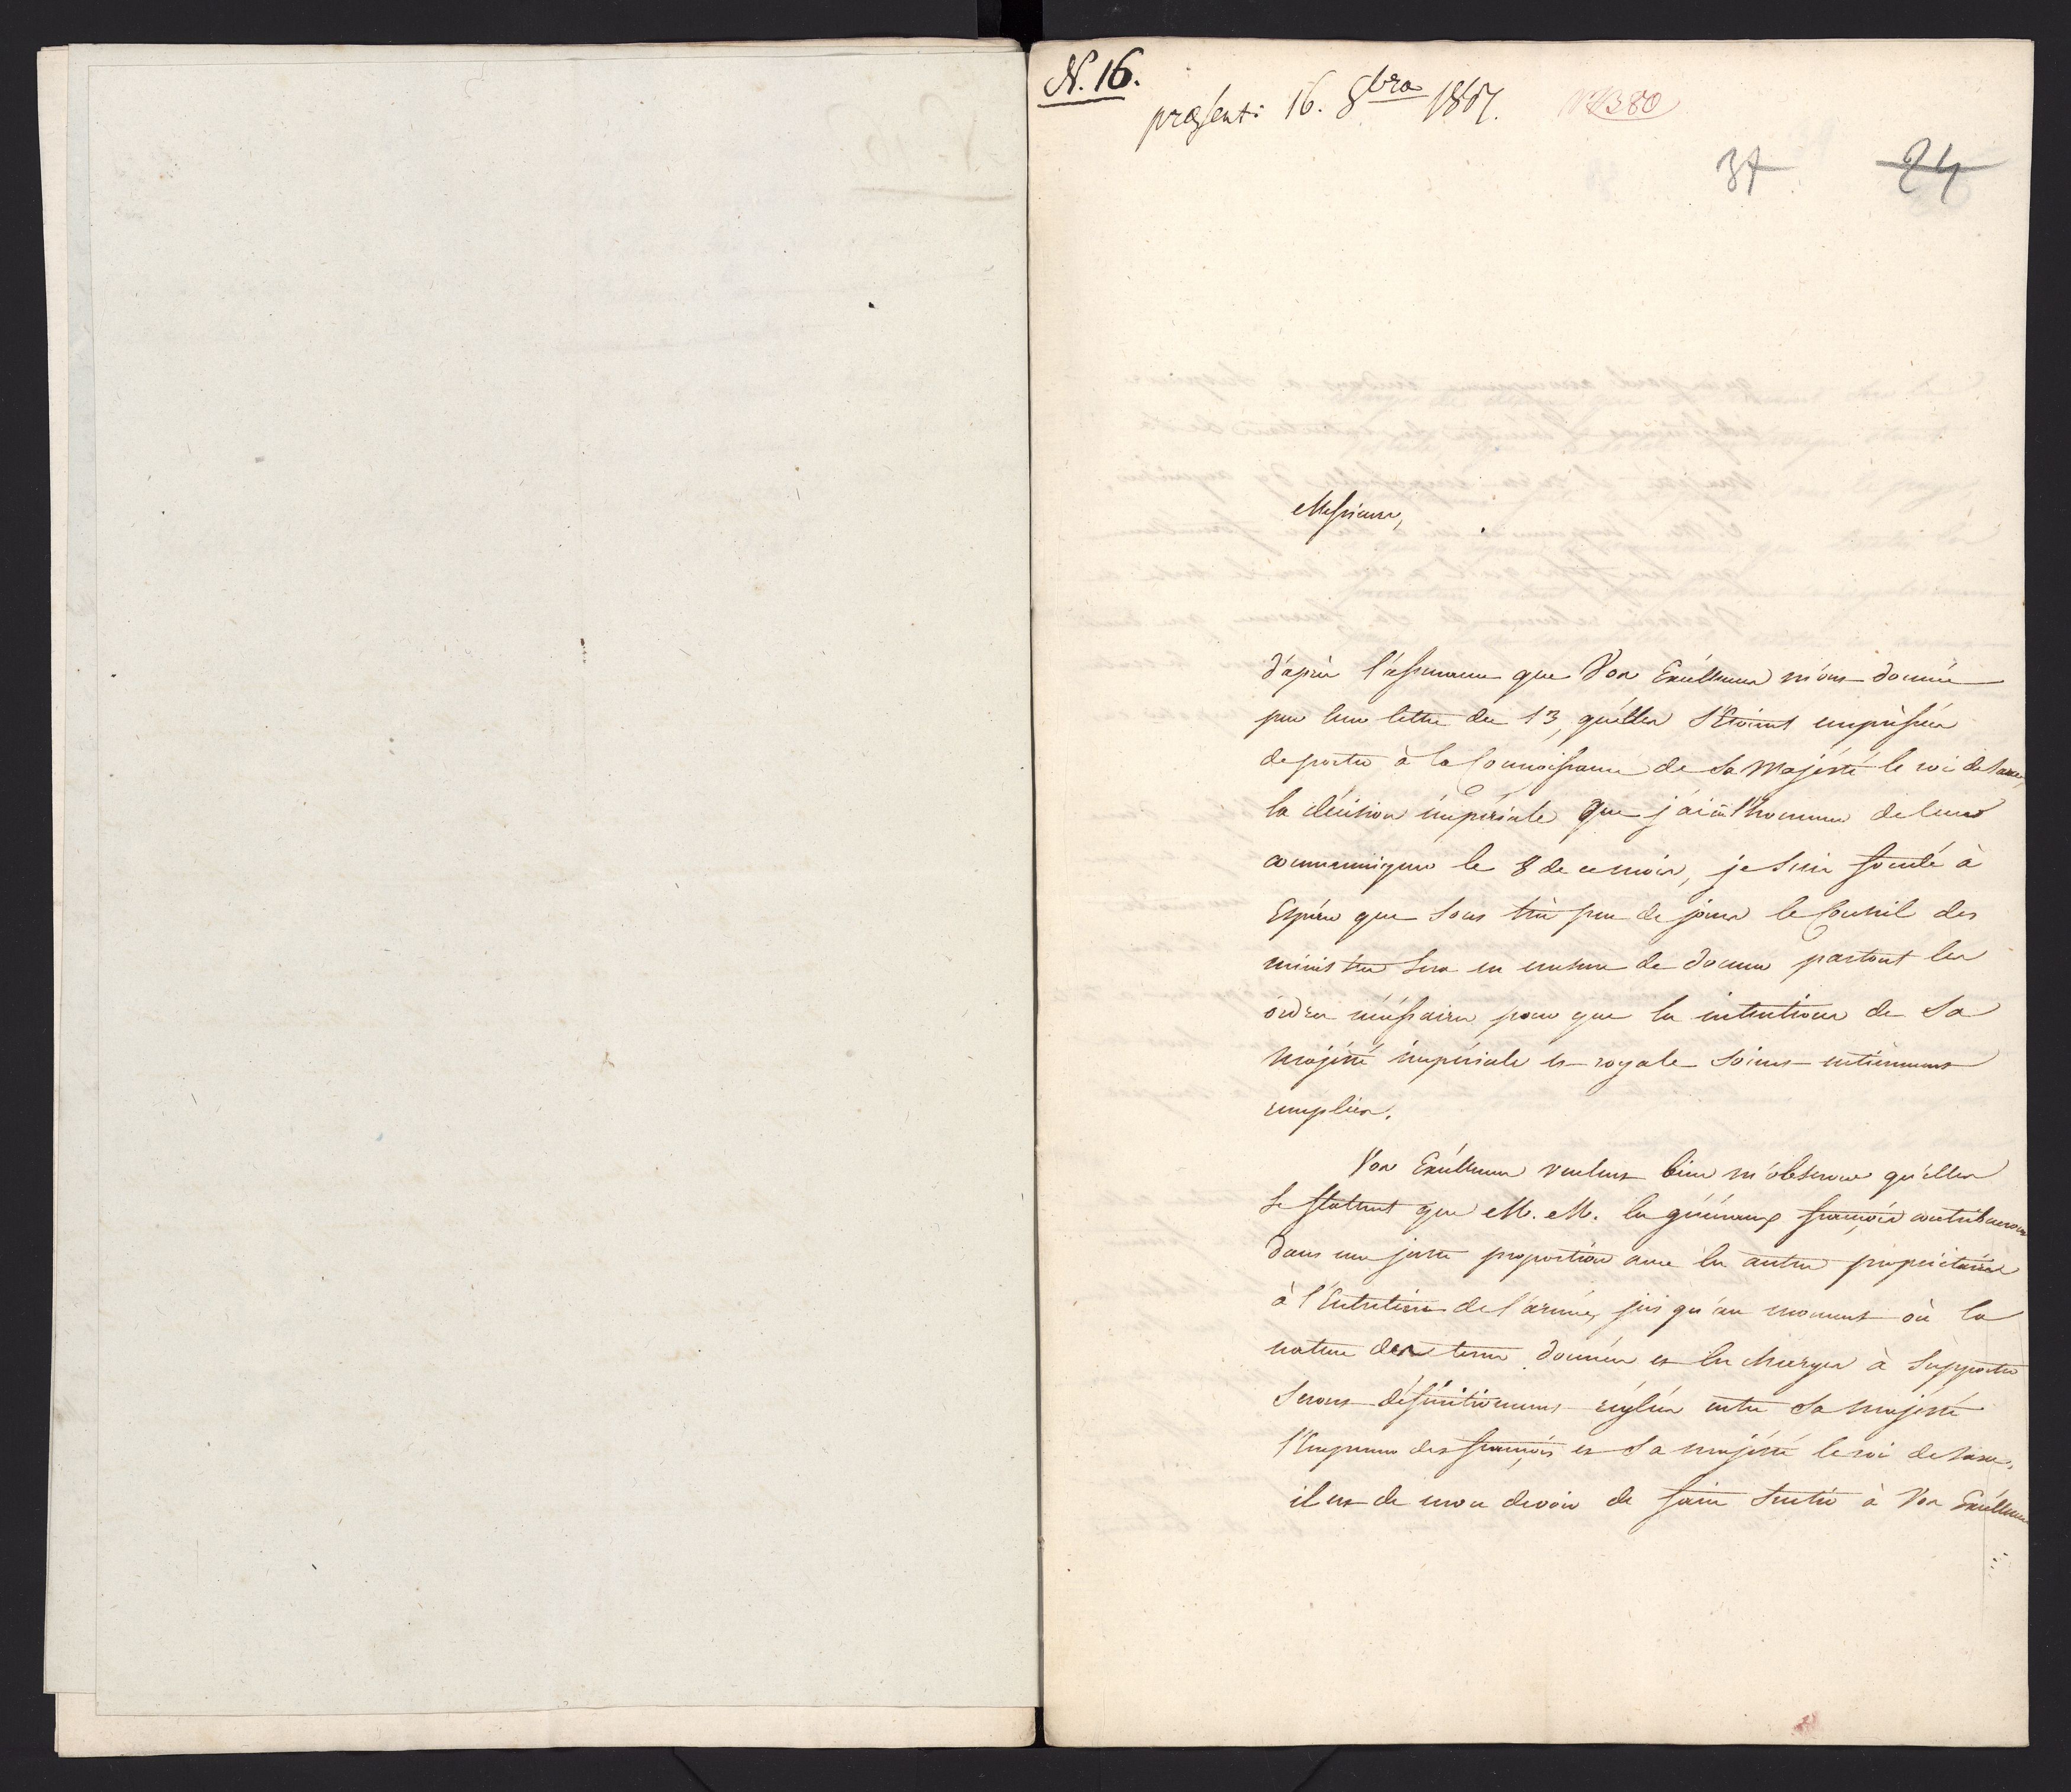 N. 16.
præsent: 16. 8bra 1807.
N 380
37 24
Messieurs,
d'après l'assurance que Vos Excéllences m'ont donnée
par leur lettre du 13, qu'elles s'étoient empréssées
de porter à la Connoissance de Sa Majésté le roi de Saxe,
la décision impériale que j'ai eû l'honneur de leur
communiquer le 8 de ce mois, je suis fondé à
Espérer que sous très peu de jours le Conseil des
ministres sera en mesure de donner partout les
ordres nécéssaires pour que les intentions de Sa
Majésté impériale et royale soient entièrement
remplies.
Vos Excéllences veulent bien m'observer qu'elles
se flattent que M. M. les généraux françois contribueront
dans une juste proportion avec les autres propriétaires
à l'Entretien de l'armée, jus qu'au moment où la
nature des terres données et les charges à Supporter
seront définitivement réglées entre Sa Majésté
l'Empereur des françois et Sa Majésté le roi de Saxe,
il est de mon devoir de faire sentir à Vos Excéllences